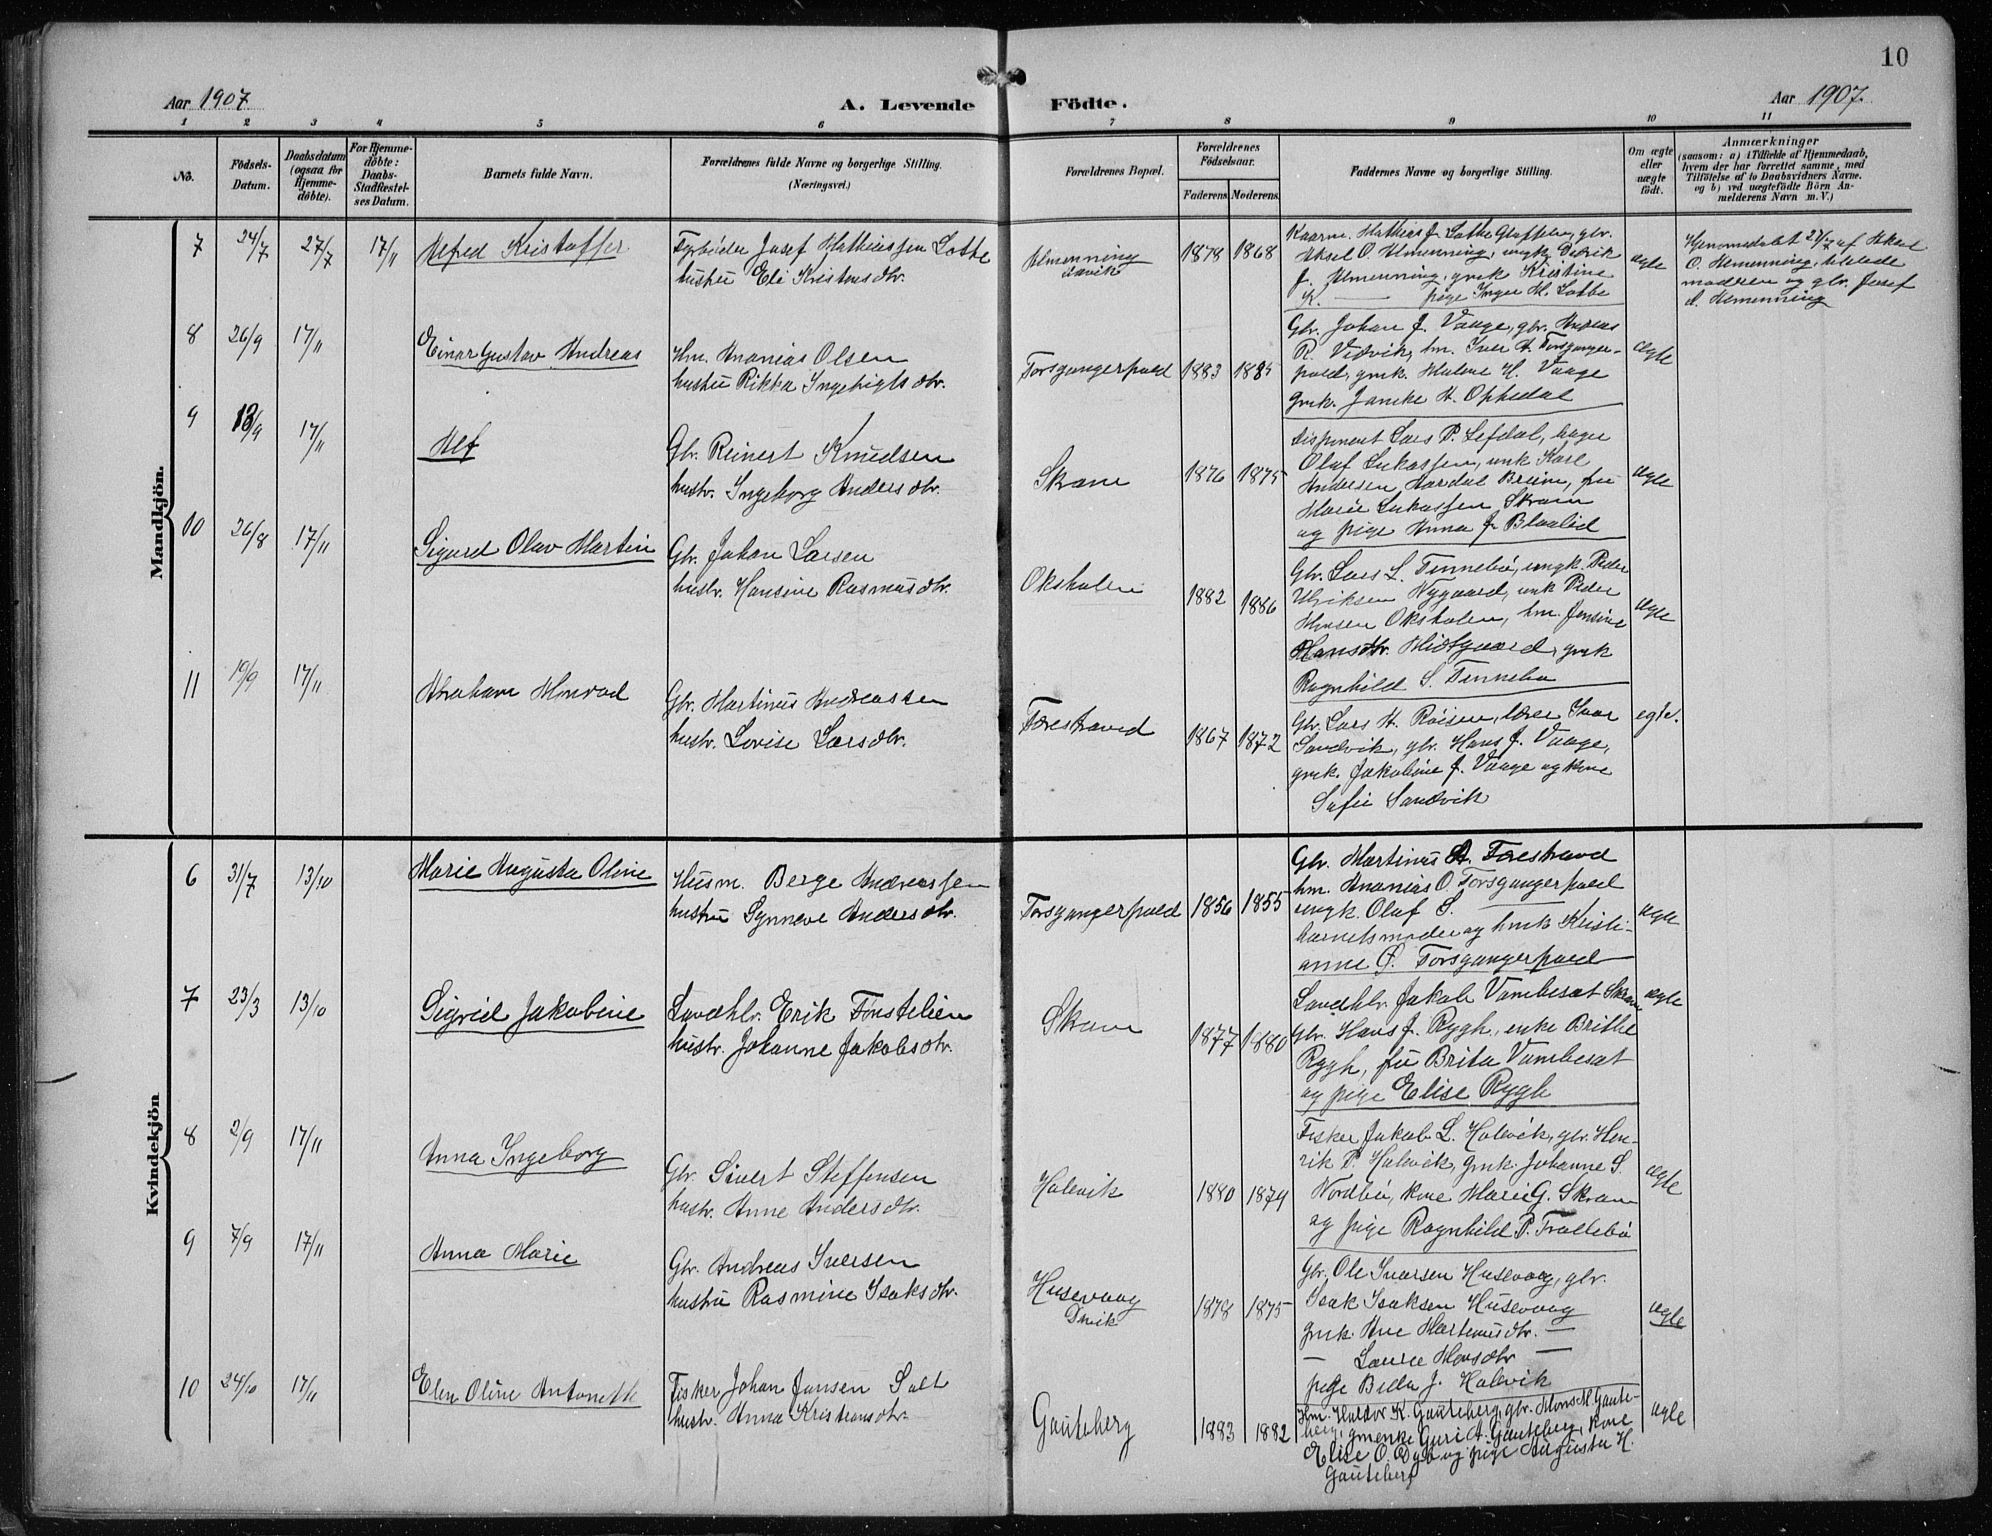 10
Aar 1907.
A. Levende Födte.
Aar 1907.
1 2 3 4 5 6 7 8 9 10 11
No.
Födsels-Datum.
Daabsdatum (ogsaa for Hjemme-döbte).
For Hjemme-döbte: Daabs-Stadfæstel-ses Datum.
Barnets fulde Navn.
Forældrenes fulde Navne og borgerlige Stilling.
(Næringsvei.)
Forældrenes Bopæl.
Forældrenes Födselsaar.
Faderens. Moderens.
Faddernes Navne og borgerlige Stilling.
Om ægte eller uægte födt.
Anmærkninger
(saasom: a) i Tilfælde af Hjemmedaab, hvem der har forrettet samme, med Tilföielse af to Daabsvidners Navne. og b) ved uægtefödte Börn An-melderens Navn m. V.)
Mandkjön.
7 24/7 27/7 17/11 Alfred Kristoffer
Fyrbøder Josef Mathiassen Lothe
hustru Eli Kristensdtr.
Almenning
1878 1868
Axel O. Almenning, ungk. Didrik
J. Almenning, gmk Kristine
K. — pige Inger M. Lothe
ægte
Hjemmedøbt 27/7 af Aksel
O. Almenning, tilstede
moderen og gbr. Josef
A. Almenning
8 26/9 17/11 Einar Gustav Andreas
Hm. Ananias Olsen
hustru Rikka Ingebrigtsdtr.
Torsgangerpold 1883 1885
Gbr. Johan J. Vaage, gbr. Andreas
R. Vedvik, hm. Iver A. Torsganger-
pold, gmk. Malene H. Vaage
gmk. Jamike A. Oppedal
ægte
9 13/9 17/11 Alf
Gbr. Reinert Knudsen
hustr. Ingeborg Andersdtr.
Skram 1876 1875
Disponent Lars P. Lefdal,
Oluf Lukassen, unk Karl
Andersen Aardal Breim, fru
Marie Lukassen Skram
og pige Anna J. Blaalid
ægte
10 26/8 17/11 Sigurd Olav Martin
Gbr. Johan Larsen
hustr. Hansine Rasmusdtr.
Oksholen 1882 1886
Gbr. Lars L. Tennebø, ungk. Peder
Ulriksen Nygaard, unk Peder
Monsen Oksholen, hm. Jensine
Hansdtr. Midtgaard, gmk
Ragnhild S. Tennebø
ægte
11 19/9 17/11 Abraham Konrad
Gbr. Martinus Andreassen
hustr. Lovise Larsdtr.
Torestrand 1867 1872
Gbr. Lars A. Røisen, lærer Ivar
Sandvik, gbr. Hans J. Vaage,
gmk. Jakobine J. Vaage og kone
Sofie Sandvik
egte.
Kvindekjön
6 31/7 13/10 Marie Augusta Oline
Husm. Berge Andreassen
hustru Synneve Andersdtr.
Torsgangerpold 1856 1855
Gbr. Martinus A. Torestrand
hm. Ananias O. Torsgangerpold
ungk. Oluf S.
barnets moder og hmk Kristi-
anne O. Torsgangerpold
ægte
7 23/3 13/10 Sigrid Jakobine
Landhlr. Erik Tonstelien
hustr. Johanne Jakobsdtr.
Skram 1877 1880
Landhlr. Jakob Vambesat Skram
Gbr. Hans J. Rygh, enke Brithe
Rygh, fru Brita Vambesat
og pige Elise Rygh
ægte
8 2/9 17/11 Anna Ingeborg
Gbr. Sivert Steffensen
hustr. Anne Andersdtr.
Halvik 1880 1879
Fisker Jakob L. Halvik, gbr. Hen-
rik P. Halvik, gmk. Johanne S.
Nordbø, kone Marie G. Skram
og pige Ragnhild P. Trollebø
ægte
9 7/9 17/11 Anna Marie
Gbr. Andreas Iversen
hustru Rasmine Isaksdtr.
Husevaag
1878 1875
Gbr. Ole Ivarsen Husevaag, gbr.
Isak Isaksen Husevaag
gmk. Ane Martinusdtr. —
— Laura Monsdtr —
pige Bella J. Halvik
ægte
10 24/10 17/11 Elen Oline Antonette
Fisker Johan Jansen Salt
hustr. Anna Kristiansdtr.
Gauteberg 1883 1882
Hm. Haldor K. Gauteberg, gbr. Mons M. Gaute-
berg, gmenke Guri A. Gauteberg, kone
Elise O. Dyb og pige Augusta H.
Gauteberg
ægte